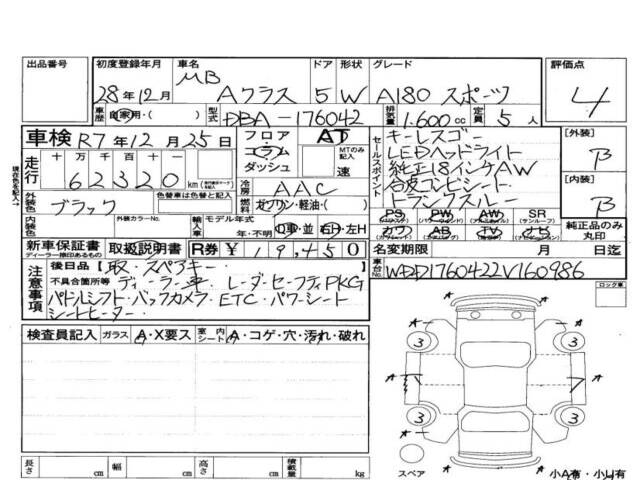 出品番号 初度登録年月 車名 ドア 形状 グレード 評価点
28年12月 MB Aクラス 5 W A180 スポーツ 4
車歴 自家用・( ) 型式 DBA-176042 排気量 1.600cc 定員 5人
車検 R7年12月25日 フロア AT セールスポイント キーレスゴー [外装]
コラム LEDヘッドライト B
ダッシュ MTのみ記入 速 純正18インチAW
走行 十万千百十一 62320 km 冷房 AAC 合皮コンビシート [内装]
トランクスルー B
外装色 ブラック 色替車は色替と記入 燃料 ガソリン・軽油・( )
PS PW AW SR
内装色 外装カラーNo. 輸入車 モデル年式 年・不明 D車・並 右H・左H エアB TV 純正品のみ丸印
新車保証書 取扱説明書 R券 ¥19,450 名変期限 月 日迄
ディーラー捺印あるもの
注意事項 後日品【取・スペアキー 】 車台No. WDD1760422V160986
不具合箇所等 ディーラー車・レーダーセーフティPKG
パドルシフト・バックカメラ・ETC・パワーシート
シートヒーター・
ロック車
検査員記入 ガラス A・X要ス 室内シート A・コゲ・穴・汚れ・破れ
A A
3 3
A A
3 3
A A
長さ cm 幅 cm 高さ cm 積載量 kg スペア 小A有・小U有
現在色を記入→